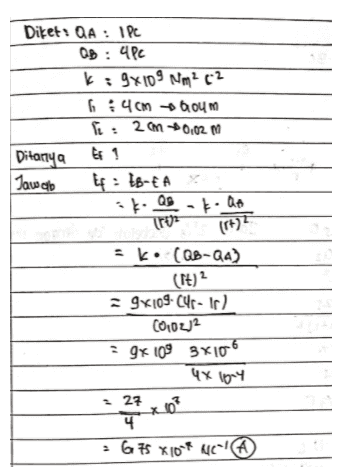 Diket : QA : 1 Pc
QB : 4 Pc
k : 9x10⁹ Nm² C⁻²
r₁ : 4 cm → 0,04 m
r₂ : 2 cm → 0,02 m
Ditanya Ef ?
Jawab Ef = EB - EA
= k · QB/(rt)² - k · QA/(rt)²
= k · (QB-QA)/(rt)²
= 9x10⁹ · (4r - 1r)/(0,02)²
= 9x10⁹ 3x10⁻⁶/4x10⁻⁴
= 27/4 x 10⁷
= 6,75 x 10⁻⁷ NC⁻¹ (A)